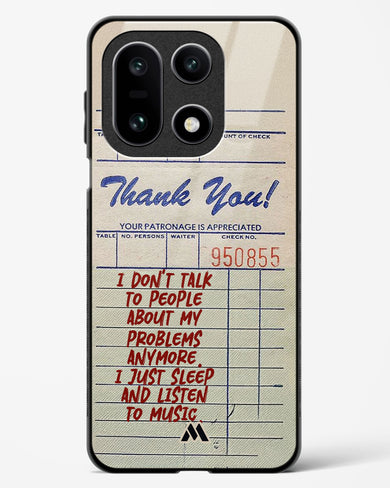 UNT OF CHECK
Thank You!
YOUR PATRONAGE IS APPRECIATED
TABLE NO. PERSONS WAITER CHECK NO.
950855
I DON'T TALK
TO PEOPLE
ABOUT MY
PROBLEMS
ANYMORE.
I JUST SLEEP
AND LISTEN
TO MUSIC.